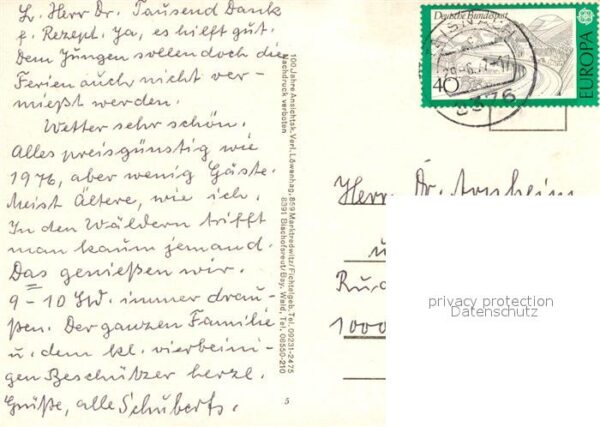 L. Herr Dr. Tausend Dank
f. Rezept. Ja, es hilft gut.
Dem Jungen sollen doch die
Ferien auch nicht ver-
miest werden.
Wetter sehr schön.
Alles preisgünstig wie
1976, aber wenig Gäste.
Meist Ältere, wie ich.
In den Wäldern trifft
man kaum jemand.
Das genießen wir.
9-10 Std. immer drau-
ßen. Der ganzen Familie
u. dem kl. vierbeini-
gen Beschützer herzl.
Grüße, alle Schuberts.
100 Jahre Ansichtsk. Verl. Löwenhag, 859 Marktredwitz/Fichtelgeb. Tel. 09231-2475
Nachdruck verboten 8391 Bischofsreut/Bay. Wald, Tel. 08550-210
5
Deutsche Bundespost
40
EUROPA
8376
Herrn Dr. Arnheim
u
1000
privacy protection
Datenschutz